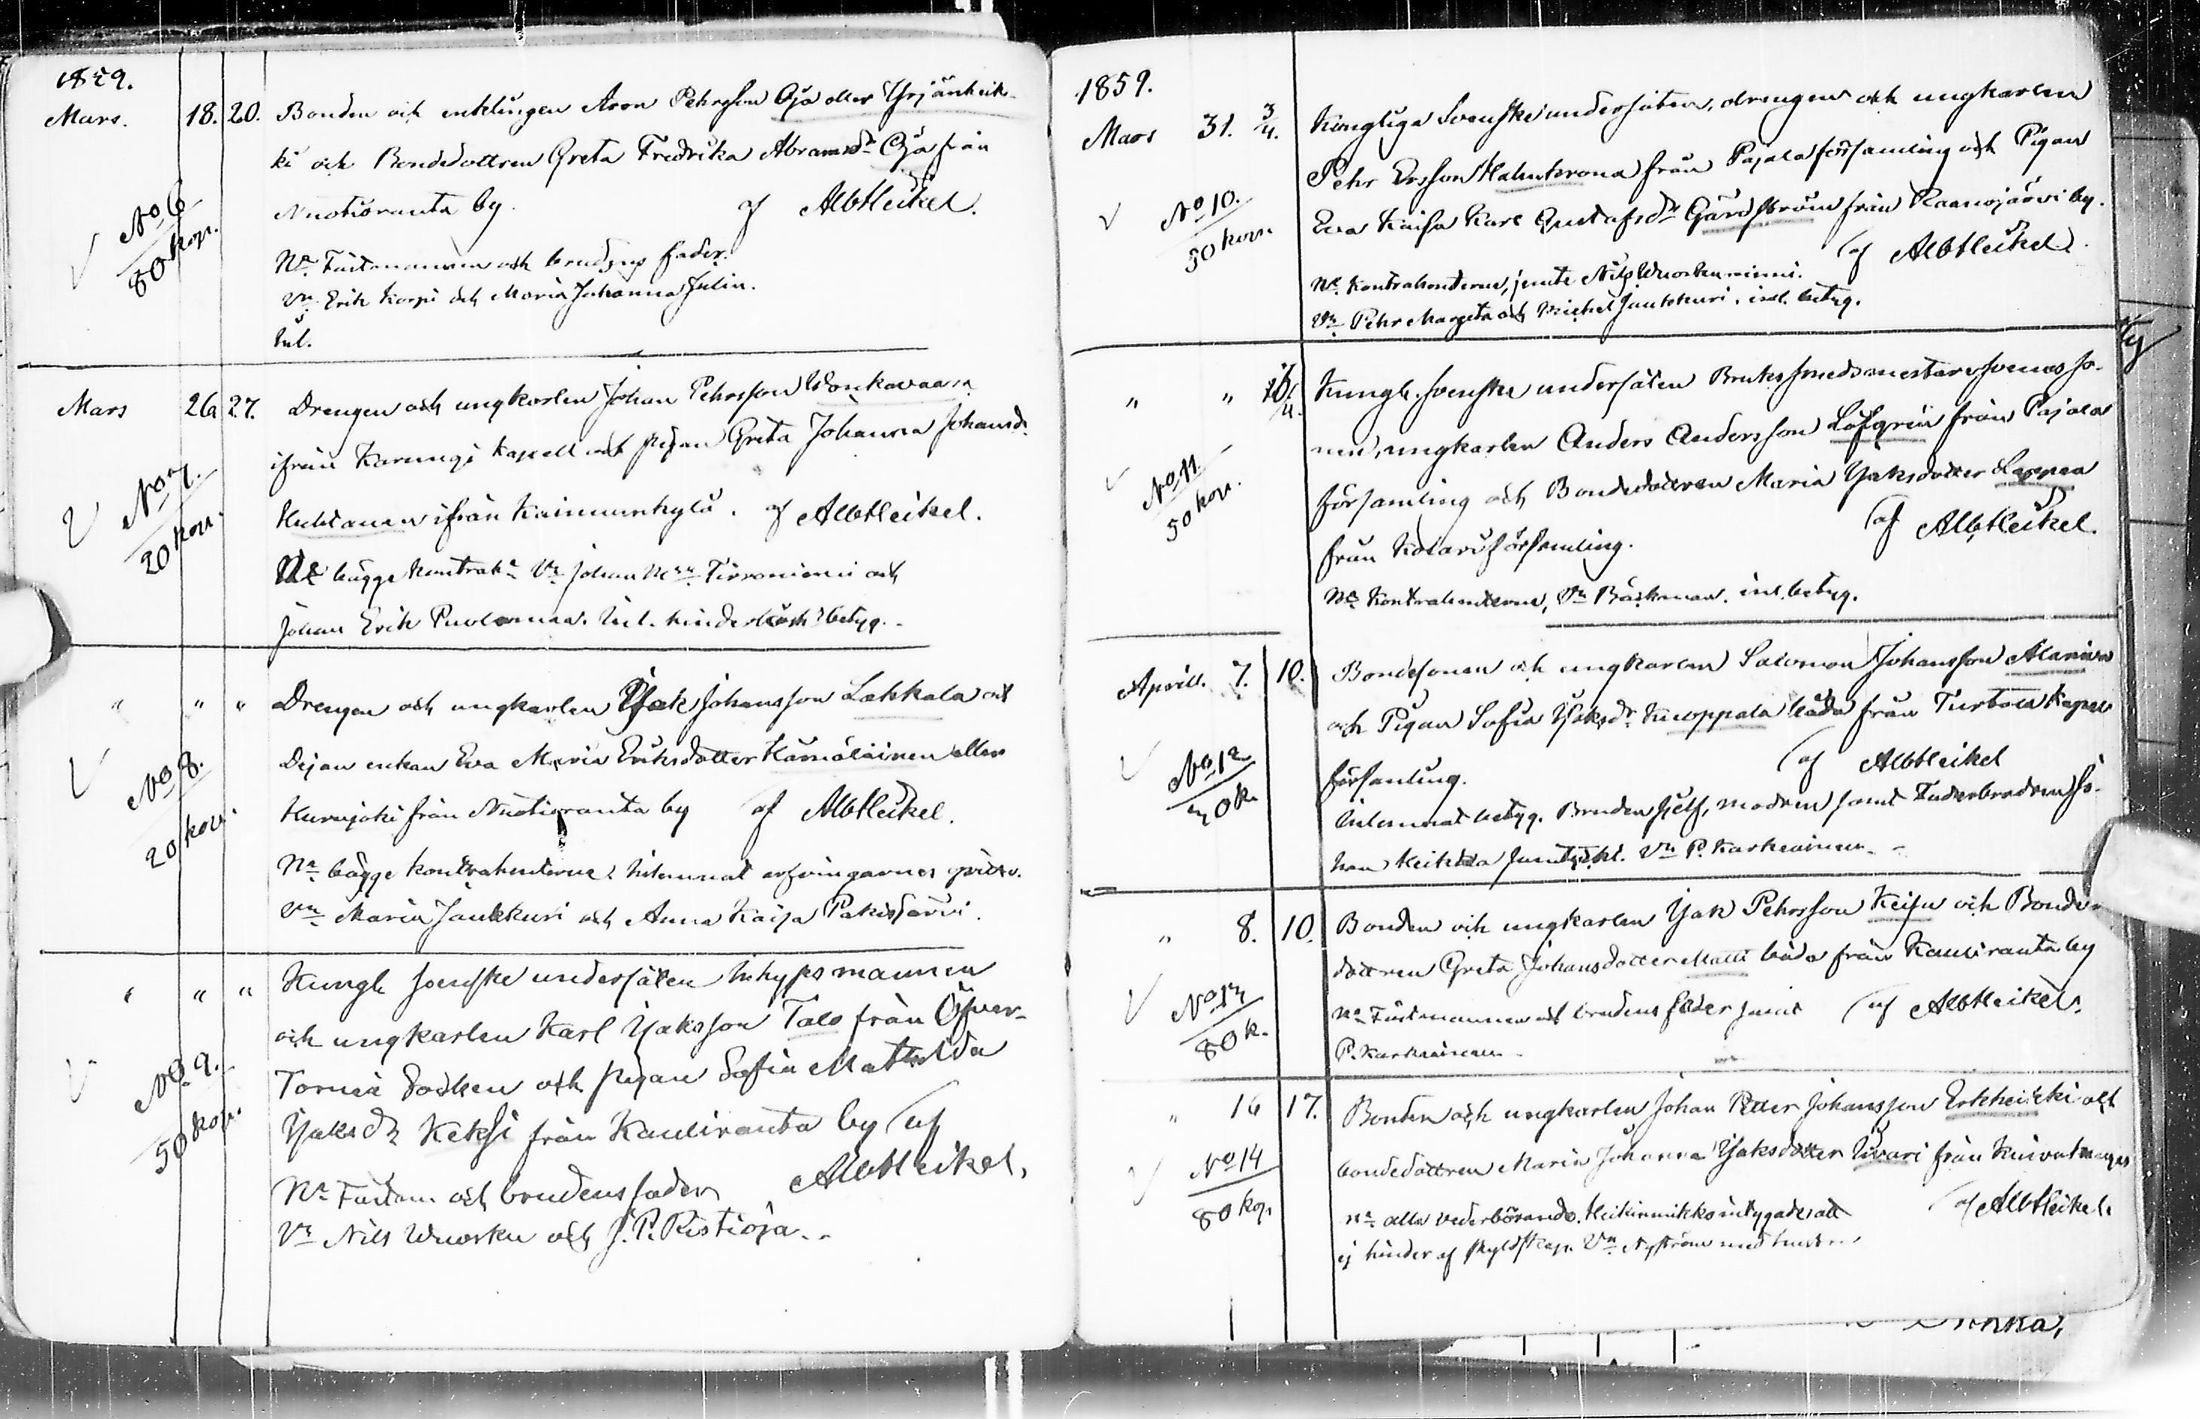 1859.
Mars. 18. 20. Bonden och enklingen Aron Pehrsson Oja eller Yrjänheik-
ki och Bondedottren Greta Fredrika Abramsdr Oja från
Nuotioranta by. af AlbHeikel.
No 6
80 kop.
Nr. Fästmannen och brudens fader.
Vn. Erik Korpi och Maria Johanna Julin.
Inl.
Mars 26 27. Drengen och ungkarlen Johan Pehrsson Wonkavaara
ifrån Karungi Kapell och pigan Greta Johanna Johansdr
No 7.
20 kop.
Huhtanen ifrån Kainuunkylä. af AlbHeikel.
Nr bägge kontrahr Vn Johan Tirroniemi och
Johan Erik. Inl. hinderlösh. betyg.
" " " Drengen och ungkarlen Isak Johansson Lakkala och
Dejan enkan Eva Maria Eriksdotter Hämäläinen eller
No 8.
20 kop.
Kurujoki från Nuotioranta by af AlbHeikel.
Nr. bägge kontrahenterne. Intemnat arfvingarnes
Vn Maria Jaukkuri och Anna Kaisa Pakisjärvi.
" " " Kungl svenske undersåten Inhyysmannen
och ungkarlen Karl Isaksson Talo från Öfver-
No 9.
50 kop.
Torneå Socken och pigan Sofia Mathilda
Isaksdr Keksi från Kauliranta by af
Nr Fästm. och brudens fader AlbHeikel.
Vn Nils Wuorku och J. P. Ristioja.
1859.
Mars 31. 3/4. Kongliga Svenske undersåten, drengen och ungkarlen
Pehr Ersson Halmkrona från Pajala församling och Pigan
No 10.
50 kop.
Eva Kaisa Karl Gustafsdr Gärdström från Raanojärvi by.
af AlbHeikel.
Nr. Kontrahenterne, jemte Nils
Vn Pehr Margeta och Michel Jaukkuri. inl. betyg.
" " Kungl. svenske undersåten Bruks smedsmästaresvennes so-
nen, ungkarlen Anders Andersson Löfgren från Pajala
No 11.
50 kop.
församling och Bondedottren Maria Isaksdotter Lappea
från Kolari församling. af AlbHeikel.
Nr Kontrahenterne, Vn Bäckman. inl. betyg.
April. 7. 10. Bondesonen och ungkarlen Salomon Johansson Alaniva
och Pigan Sofia Isaksdr Kuoppala båda från Turtola Kapell
No 12
50 k.
församling. af AlbHeikel
Inlemnat betyg. Bruden sjelf, modren samt Faderbrodren Jo-
han Heikka samtyckt. Vn P. Karhiainen.
" 8. 10. Bonden och ungkarlen Isak Pehrsson Keisu och Bonde-
dottren Greta Johansdotter Matti båda från Kauliranta by
No 13
80 k.
Nr Fästmannen och brudens fader samt af AlbHeikel.
P. Karhiainen.
" 16 17. Bonden och ungkarlen Johan Petter Johansson Erkheikki och
bondedottren Maria Johanna Isaksdotter Kuari från Kuivakangas
No 14
80 kop.
Nr alla vederbörande. Heikinmikko intygade att af AlbHeikel.
ej hinder af skyldskap. Vn Nyström med